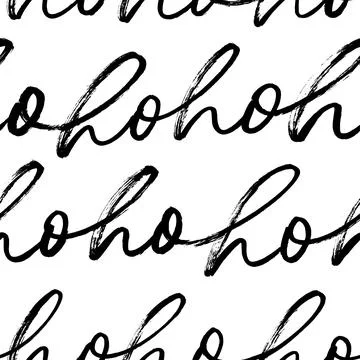 hohoho
ohohoh
hohoho
hohoho